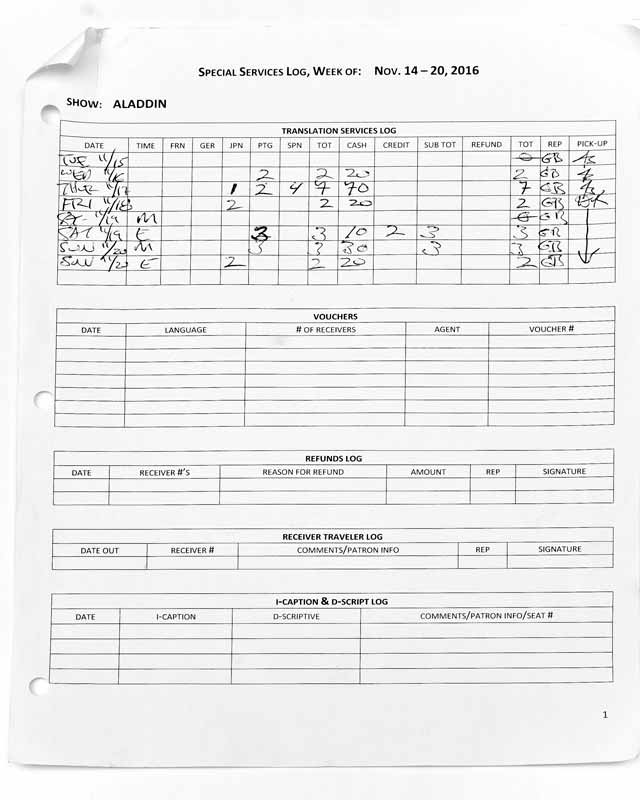 SPECIAL SERVICES LOG, WEEK OF: NOV. 14 – 20, 2016
SHOW: ALADDIN
TRANSLATION SERVICES LOG
DATE TIME FRN GER JPN PTG SPN TOT CASH CREDIT SUB TOT REFUND TOT REP PICK-UP
TUE 11/15 0 GB
WED 11/16 2 2 20 2 GB
THUR 11/17 1 2 4 7 70 7 GB
FRI 11/18 2 2 20 2 GB
11/19 M 0 GB
SAT 11/9 E 3 3 10 2 3 3 GB
SUN 11/20 M 3 3 30 3 3 GB
SUN 11/20 E 2 2 20 2 GB
VOUCHERS
DATE LANGUAGE # OF RECEIVERS AGENT VOUCHER #
REFUNDS LOG
DATE RECEIVER #'S REASON FOR REFUND AMOUNT REP SIGNATURE
RECEIVER TRAVELER LOG
DATE OUT RECEIVER # COMMENTS/PATRON INFO REP SIGNATURE
I-CAPTION & D-SCRIPT LOG
DATE I-CAPTION D-SCRIPTIVE COMMENTS/PATRON INFO/SEAT #
1